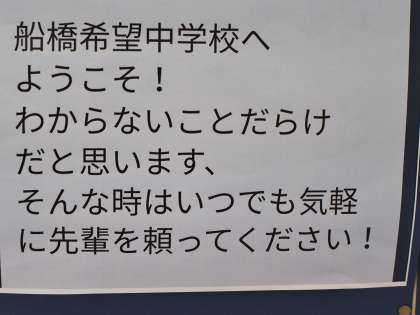 船橋希望中学校へ
ようこそ！
わからないことだらけ
だと思います、
そんな時はいつでも気軽
に先輩を頼ってください！